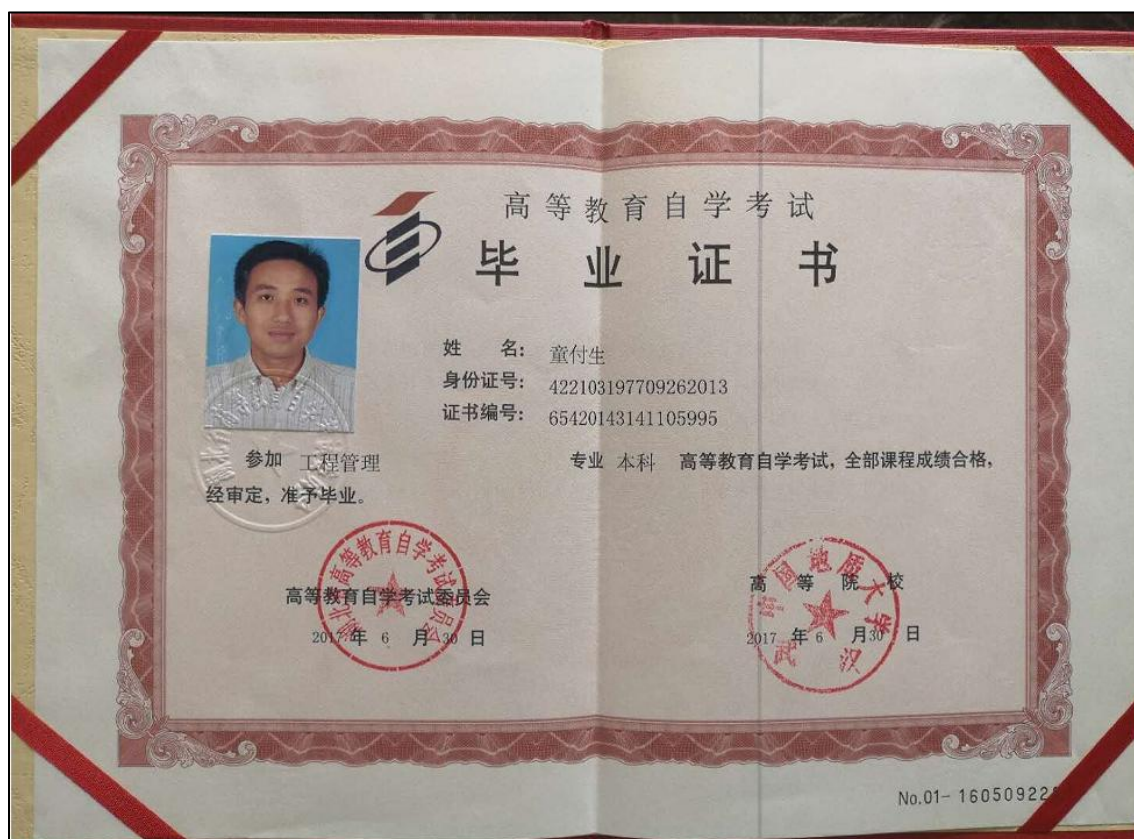 高等教育自学考试
毕业证书
姓 名: 童付生
身份证号: 422103197709262013
证书编号: 65420143141105995
参加 工程管理 专业 本科 高等教育自学考试，全部课程成绩合格，
经审定，准予毕业。
高等教育自学考试委员会
高等院校
2017 年 6 月 30 日
2017 年 6 月 30 日
湖北省高等教育自学考试委员会
中国地质大学
武汉
No.01- 16050922